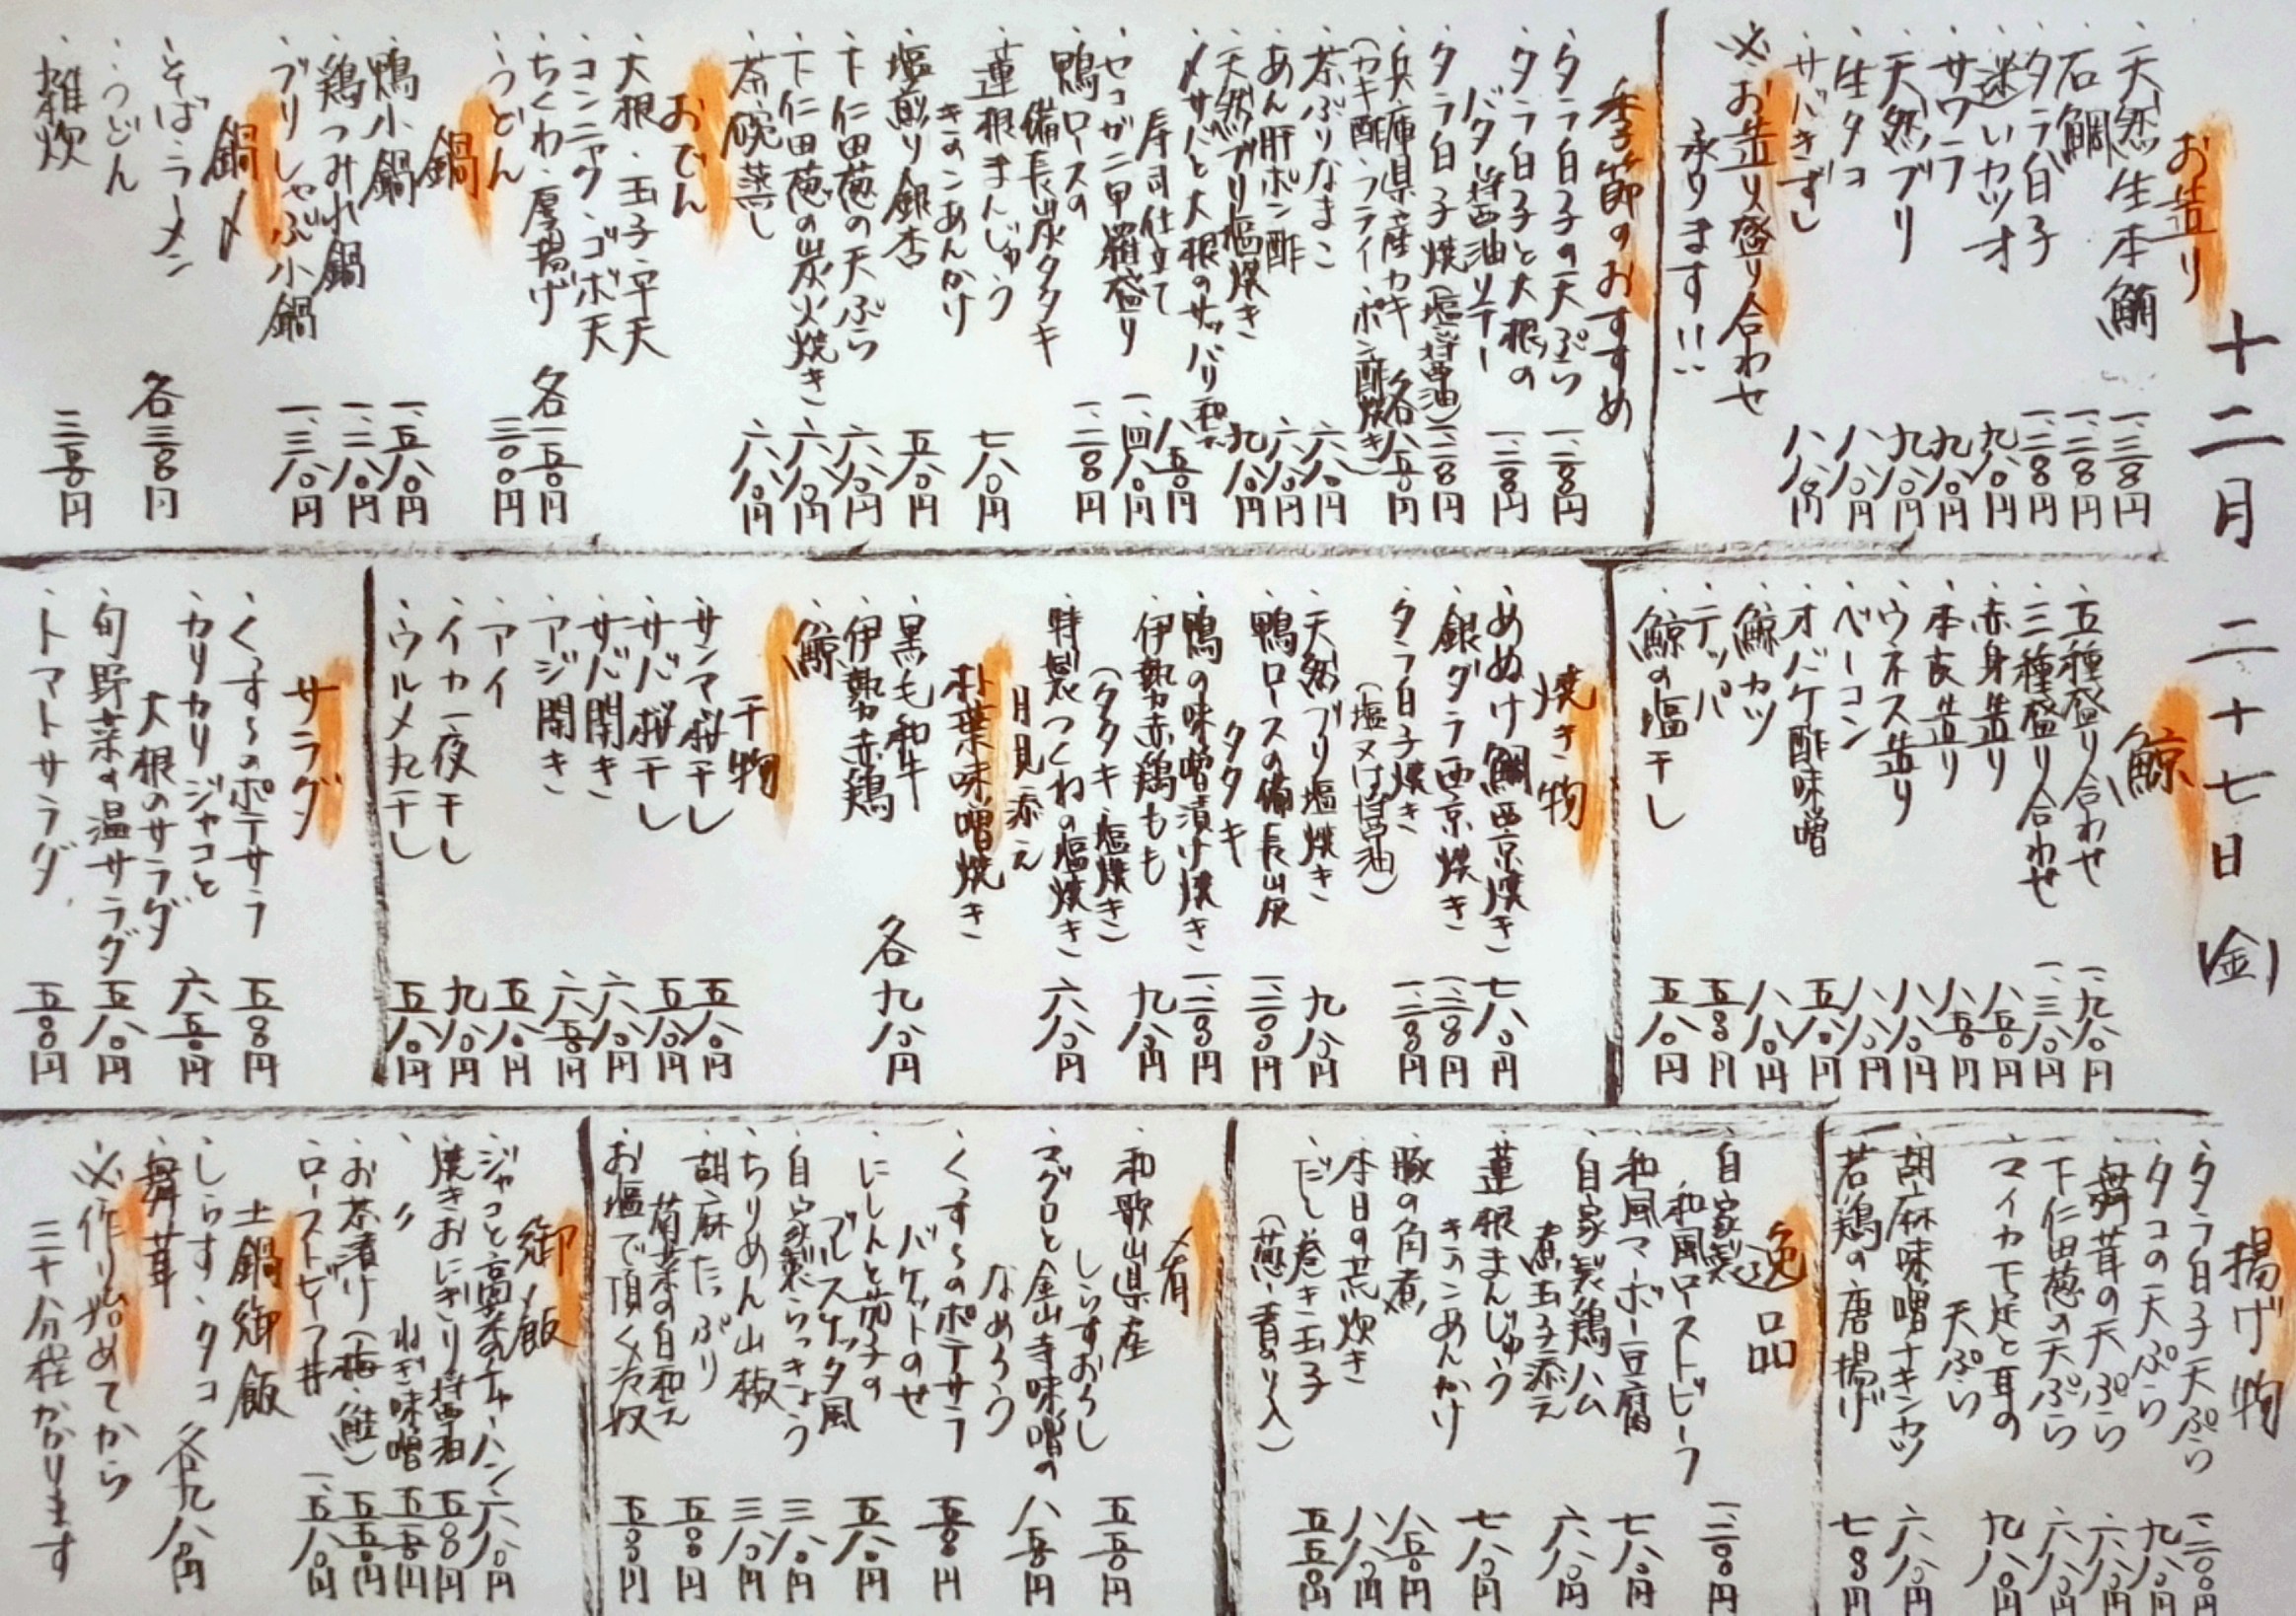 十二月二十七日(金)
お造り
・天然生本鮪 一、三〇〇円
・石鯛 一、二〇〇円
・タラ白子 一、二〇〇円
・迷いカツオ 九八〇円
・サワラ 九八〇円
・天然ブリ 九八〇円
・生タコ 八八〇円
・サバきずし 八八〇円
※お造り盛り合わせ
承ります!!
季節のおすすめ
・タラ白子の天ぷら 一、二〇〇円
・タラ白子と大根の
バター醤油ソテー 一、二〇〇円
・タラ白子焼(塩・醤油) 一、二〇〇円
・兵庫県産カキ 各八五〇円
(カキ酢・フライ・ポン酢焼き)
・茶ぶりなまこ 六八〇円
・あん肝ポン酢 六八〇円
・天然ブリ塩焼き 九八〇円
・〆サバと大根のサッパリ和え
寿司仕立て 八五〇円
・セコガニ甲羅盛り 一、四八〇円
・鴨ロースの
備長炭タタキ 一、二〇〇円
・蓮根まんじゅう
きのこあんかけ 七八〇円
・塩煎り銀杏 五八〇円
・下仁田葱の天ぷら 六八〇円
・下仁田葱の炭火焼き 六八〇円
・茶碗蒸し 六八〇円
おでん
・大根・玉子・平天
・コンニャク・ゴボ天
・ちくわ・厚揚げ 各一五〇円
・うどん 三〇〇円
鍋
・鴨小鍋 一、五八〇円
・鶏つみれ鍋 一、二八〇円
・ブリしゃぶ小鍋 一、三八〇円
鍋〆
・そば・ラーメン
・うどん 各三〇〇円
・雑炊 三五〇円
鯨
・五種盛り合わせ 一、九八〇円
・三種盛り合わせ 一、三八〇円
・赤身造り 八五〇円
・本皮造り 八五〇円
・ウネス造り 八八〇円
・ベーコン 八八〇円
・オバケ酢味噌 五八〇円
・鯨カツ 八八〇円
・テッパ 五五〇円
・鯨の塩干し 五八〇円
焼き物
・めぬけ鯛西京焼き 七八〇円
・銀ダラ西京焼き 一、二〇〇円
・タラ白子焼き
(塩又は醤油) 一、二〇〇円
・天然ブリ塩焼き 九八〇円
・鴨ロースの備長炭
タタキ 一、二〇〇円
・鴨の味噌漬け焼き 一、二〇〇円
・伊勢赤鶏もも
(タタキ・塩焼き) 九八〇円
・特製つくねの塩焼き
月見添え 六八〇円
朴葉味噌焼き
・黒毛和牛
・伊勢赤鶏
・鯨 各九八〇円
干物
・サンマ桜干し 五八〇円
・サバ桜干し 五八〇円
・サバ開き 六八〇円
・アジ開き 六五〇円
・アイ 五八〇円
・イカ一夜干し 九八〇円
・ウルメ丸干し 五八〇円
サラダ
・くす〜のポテサラ 五五〇円
・カリカリジャコと
大根のサラダ 六五〇円
・旬野菜の温サラダ 五八〇円
・トマトサラダ 五五〇円
揚げ物
・タラ白子天ぷら 一、二〇〇円
・タコの天ぷら 九八〇円
・舞茸の天ぷら 六八〇円
・下仁田葱の天ぷら 六八〇円
・マイカ下足と耳の
天ぷら 九八〇円
・胡麻味噌チキンカツ 六八〇円
・若鶏の唐揚げ 七五〇円
逸品
・自家製
和風ローストビーフ 一、二〇〇円
・和風マーボー豆腐 七八〇円
・自家製鶏ハム
煮玉子添え 六八〇円
・蓮根まんじゅう
きのこあんかけ 七八〇円
・豚の角煮 八五〇円
・本日の荒炊き 八八〇円
・だし巻き玉子
(葱・青のり入) 五五〇円
肴
・和歌山県産
しらすおろし 五五〇円
・マグロと金山寺味噌の
なめろう 八五〇円
・くす〜のポテサラ
バケットのせ 五五〇円
・にしんと茄子の
ブルスケッタ風 五八〇円
・自家製らっきょう 三八〇円
・ちりめん山椒 三八〇円
・胡麻たっぷり
菊菜の白和え 五五〇円
・お塩で頂く冷奴 五五〇円
御飯
・ジャコと高菜のチャーハン 六八〇円
・焼きおにぎり醤油 五五〇円
・〃 ねぎ味噌 五五〇円
・お茶漬け(梅・鮭) 五五〇円
・ローストビーフ丼 一、五八〇円
土鍋御飯
・しらす・タコ
・舞茸 各九八〇円
※作り始めてから
三十分程かかります